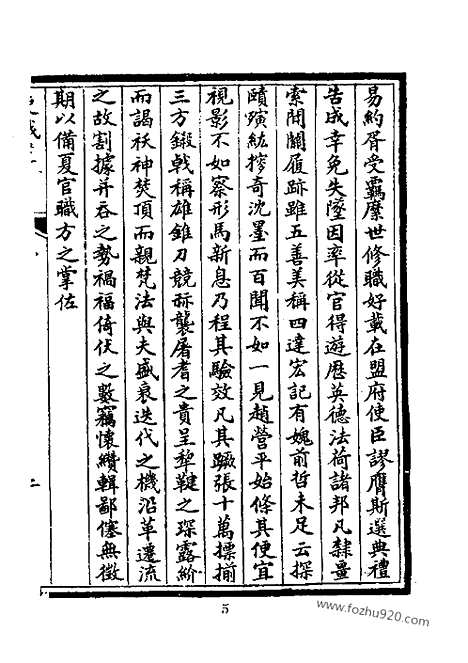 易約胥受羈縻世修職好載在盟府使臣謬膺斯選典禮
告成幸免失墜因率從官得遊歷英德法荷諸邦凡隸量
索閒闞履跡雖五善美稱四達宏記有媿前哲未足云探
賾蹟紘摎奇沈墨而百聞不如一見趙營平始條其便宜
視影不如察形馬新息乃程其驗效凡其蹶張十萬摽揃
三方鍛戟稱雄錐刀競研襲屠耆之貴呈犂鞬之琛露紒
而謁祆神焚頂而親梵法與夫盛衰迭代之機沿革遷流
之故割據并吞之勢禍福倚伏之數竊懷纘輯鄙僿無徵
期以備夏官職方之掌佐
二
5
www.fozhu920.com